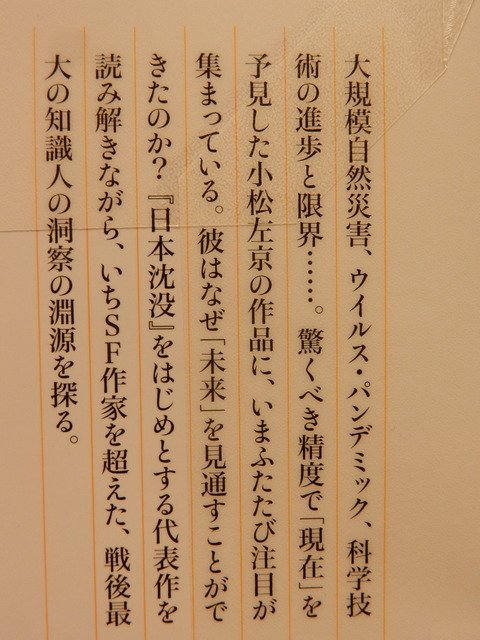 大規模自然災害、ウイルス・パンデミック、科学技
術の進歩と限界……。驚くべき精度で「現在」を
予見した小松左京の作品に、いまふたたび注目が
集まっている。彼はなぜ「未来」を見通すことがで
きたのか？『日本沈没』をはじめとする代表作を
読み解きながら、いちSF作家を超えた、戦後最
大の知識人の洞察の淵源を探る。